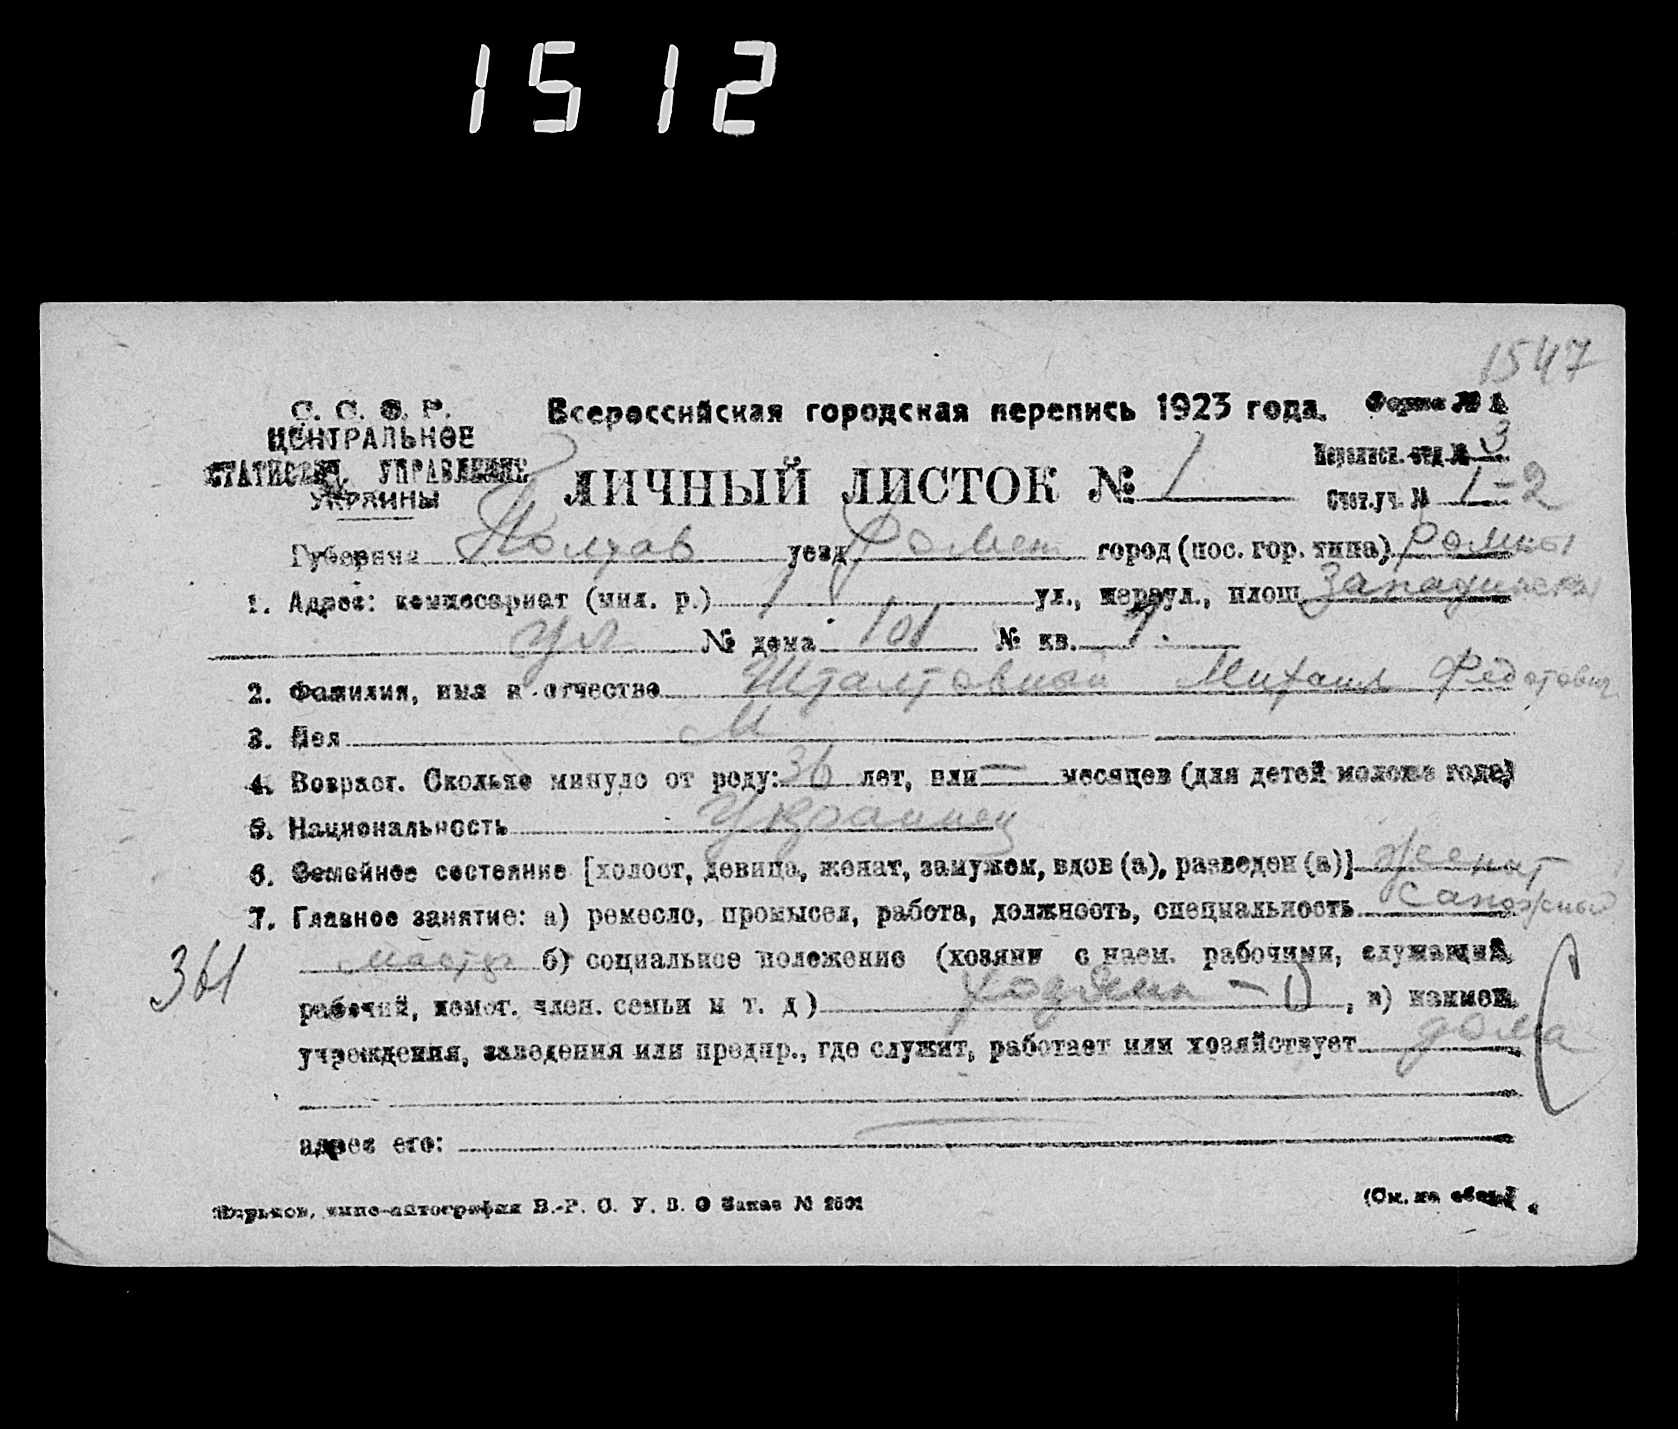 1512
1547
С. С. С. Р.
ЦЕНТРАЛЬНОЕ
СТАТИСТИЧ. УПРАВЛЕНИЕ
УКРАИНЫ
Всероссийская городская перепись 1923 года. Форма № 1
Переписн. отд. № 3
ЛИЧНЫЙ ЛИСТОК № 1
Счет. уч. № 1-2
Губерния Полтав уезд Ромен город (пос. гор. типа) Ромны
1. Адрес: комиссариат (мил. р.) 1 ул., переул., площ.
ул № дома 101 № кв. 1.
2. Фамилия, имя и отчество Михаил Федотович
3. Пол М
4. Возраст. Сколько минуло от роду: 36 лет, или — месяцев (для детей моложе года)
5. Национальность Украинец
6. Семейное состояние [холост, девица, женат, замужем, вдов (а), разведен (а)] женат
7. Главное занятие: а) ремесло, промысел, работа, должность, специальность сапожный
361
мастер б) социальное положение (хозяин с наем. рабочими, служащий,
рабочий, помог. член. семьи и т. д) хозяин - 0, в) наимен.
учреждения, заведения или предпр., где служит, работает или хозяйствует дома
адрес его:
Харьков, типо-литография В.-Р. С. У. З. О Заказ № 2501
(См. на обор.)